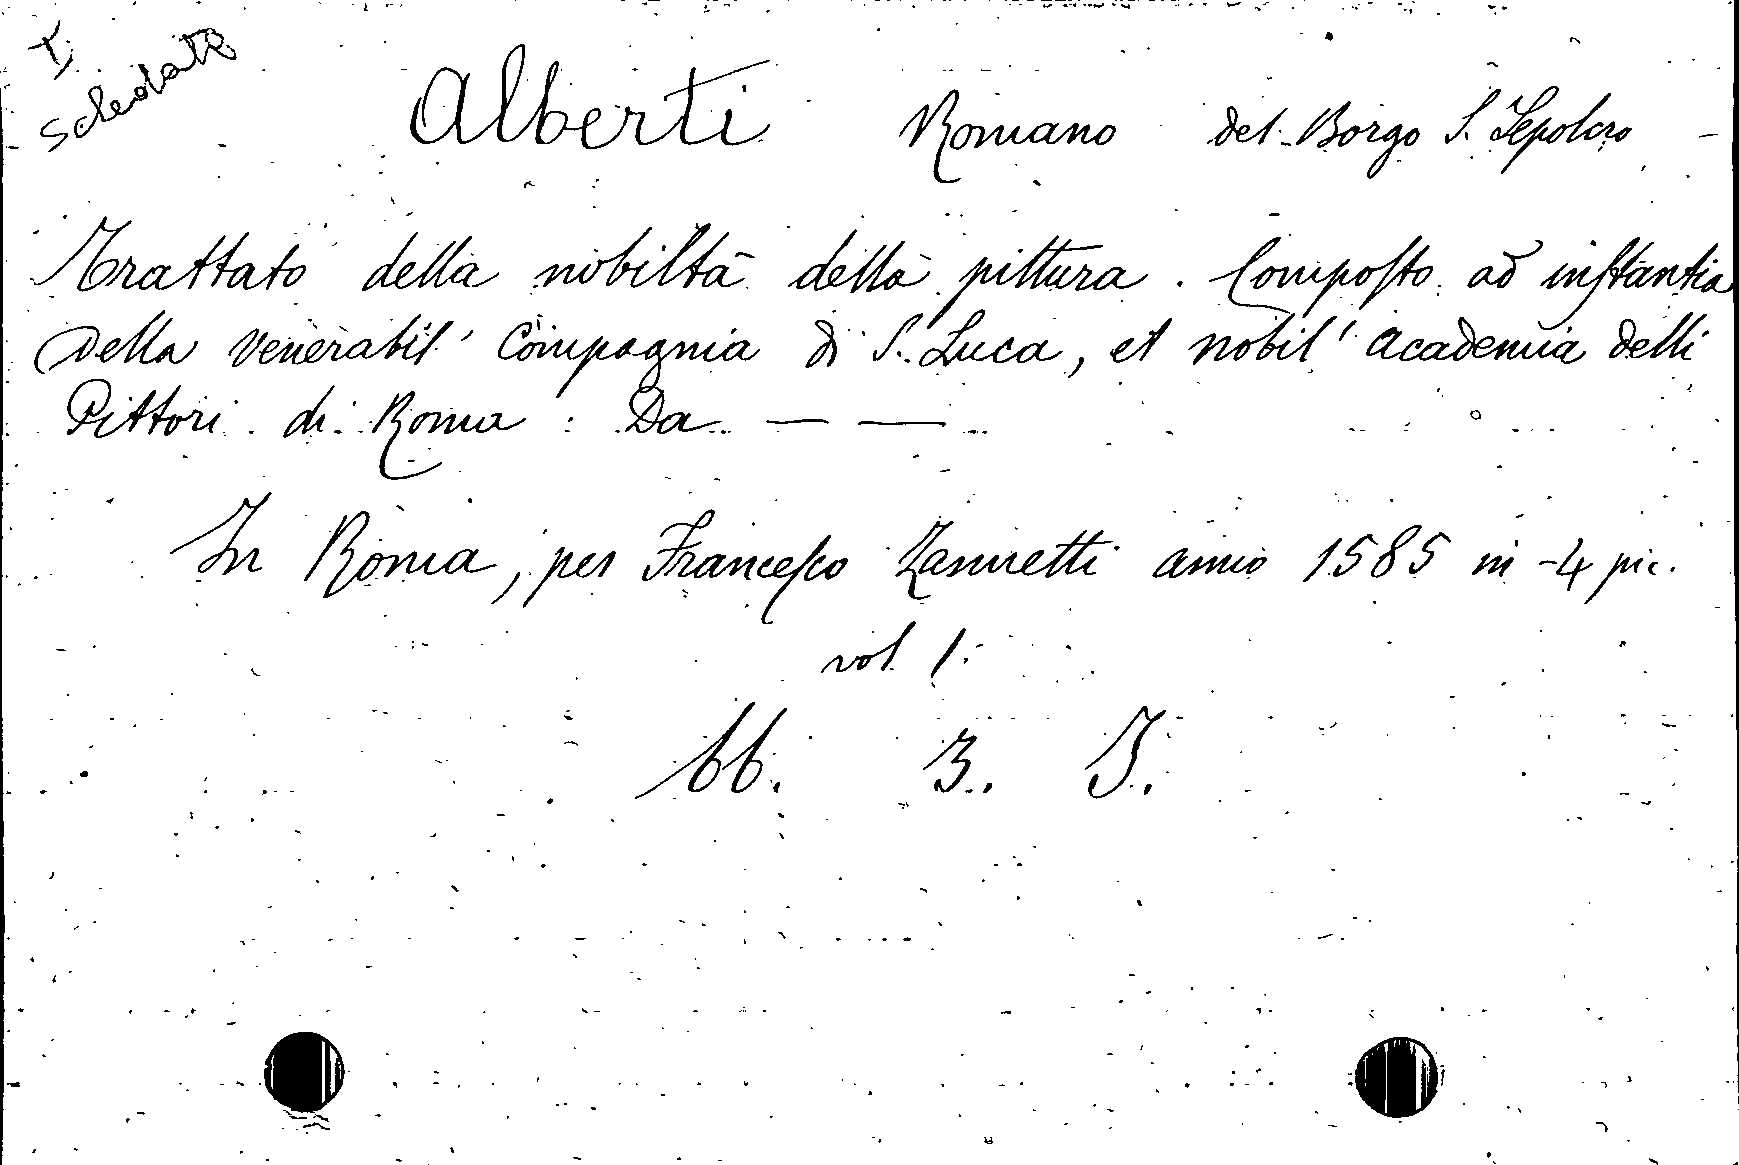 I
schedato
Alberti Romano del Borgo S. Sepolcro
Trattato della nobiltà della pittura. Composto ad instantia
della venerabil' Compagnia di S. Luca, et nobil' Academia delli
Pittori di Roma : Da — —
In Roma, per Francesco Zannetti anno 1585 in-4 pic.
vol 1.
bb. 3. I.